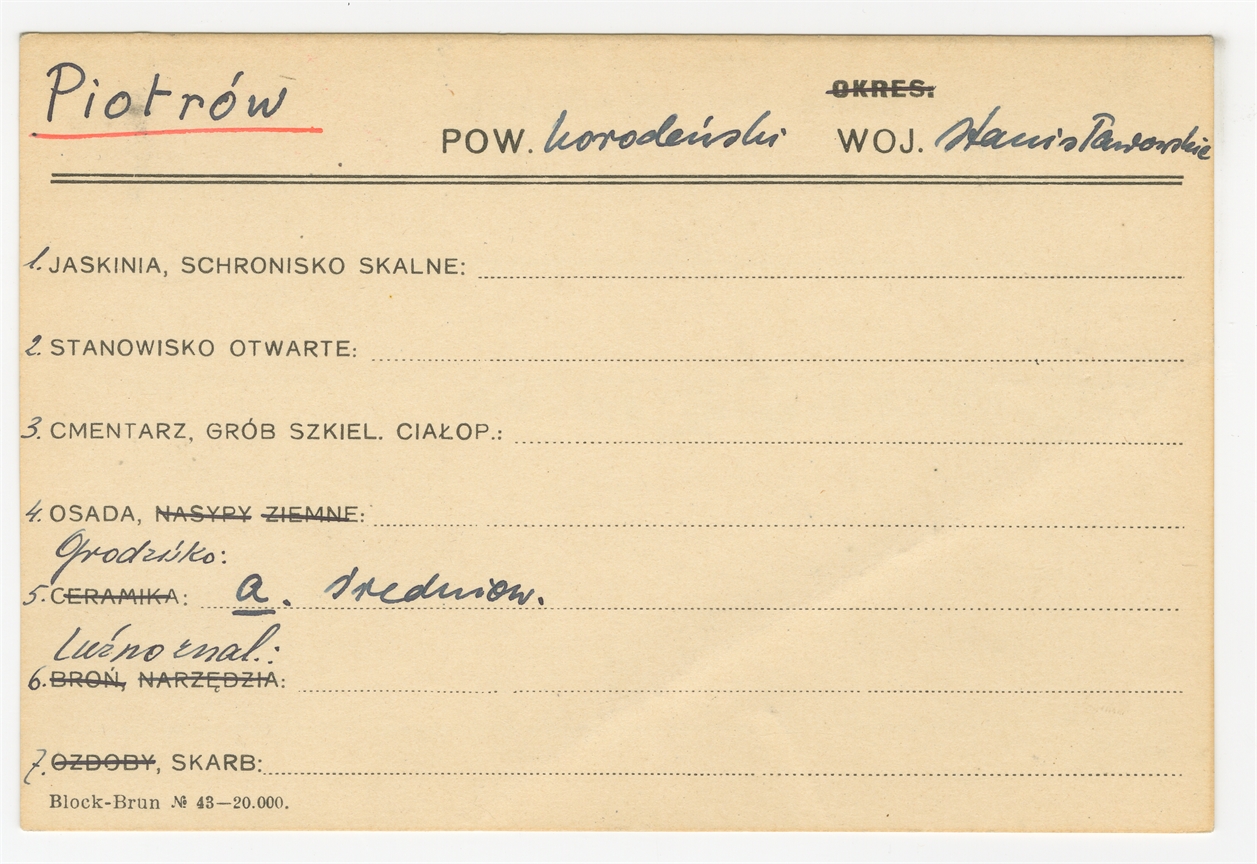 Piotrów
OKRES:
POW. horodeński WOJ. Stanisławowskie
1. JASKINIA, SCHRONISKO SKALNE:
2. STANOWISKO OTWARTE:
3. CMENTARZ, GRÓB SZKIEL. CIAŁOP.:
4. OSADA, NASYPY ZIEMNE:
Grodzisko:
5. CERAMIKA: a. średniow.
Luźno znal.:
6. BROŃ, NARZĘDZIA:
7. OZDOBY, SKARB:
Block-Brun № 43—20.000.